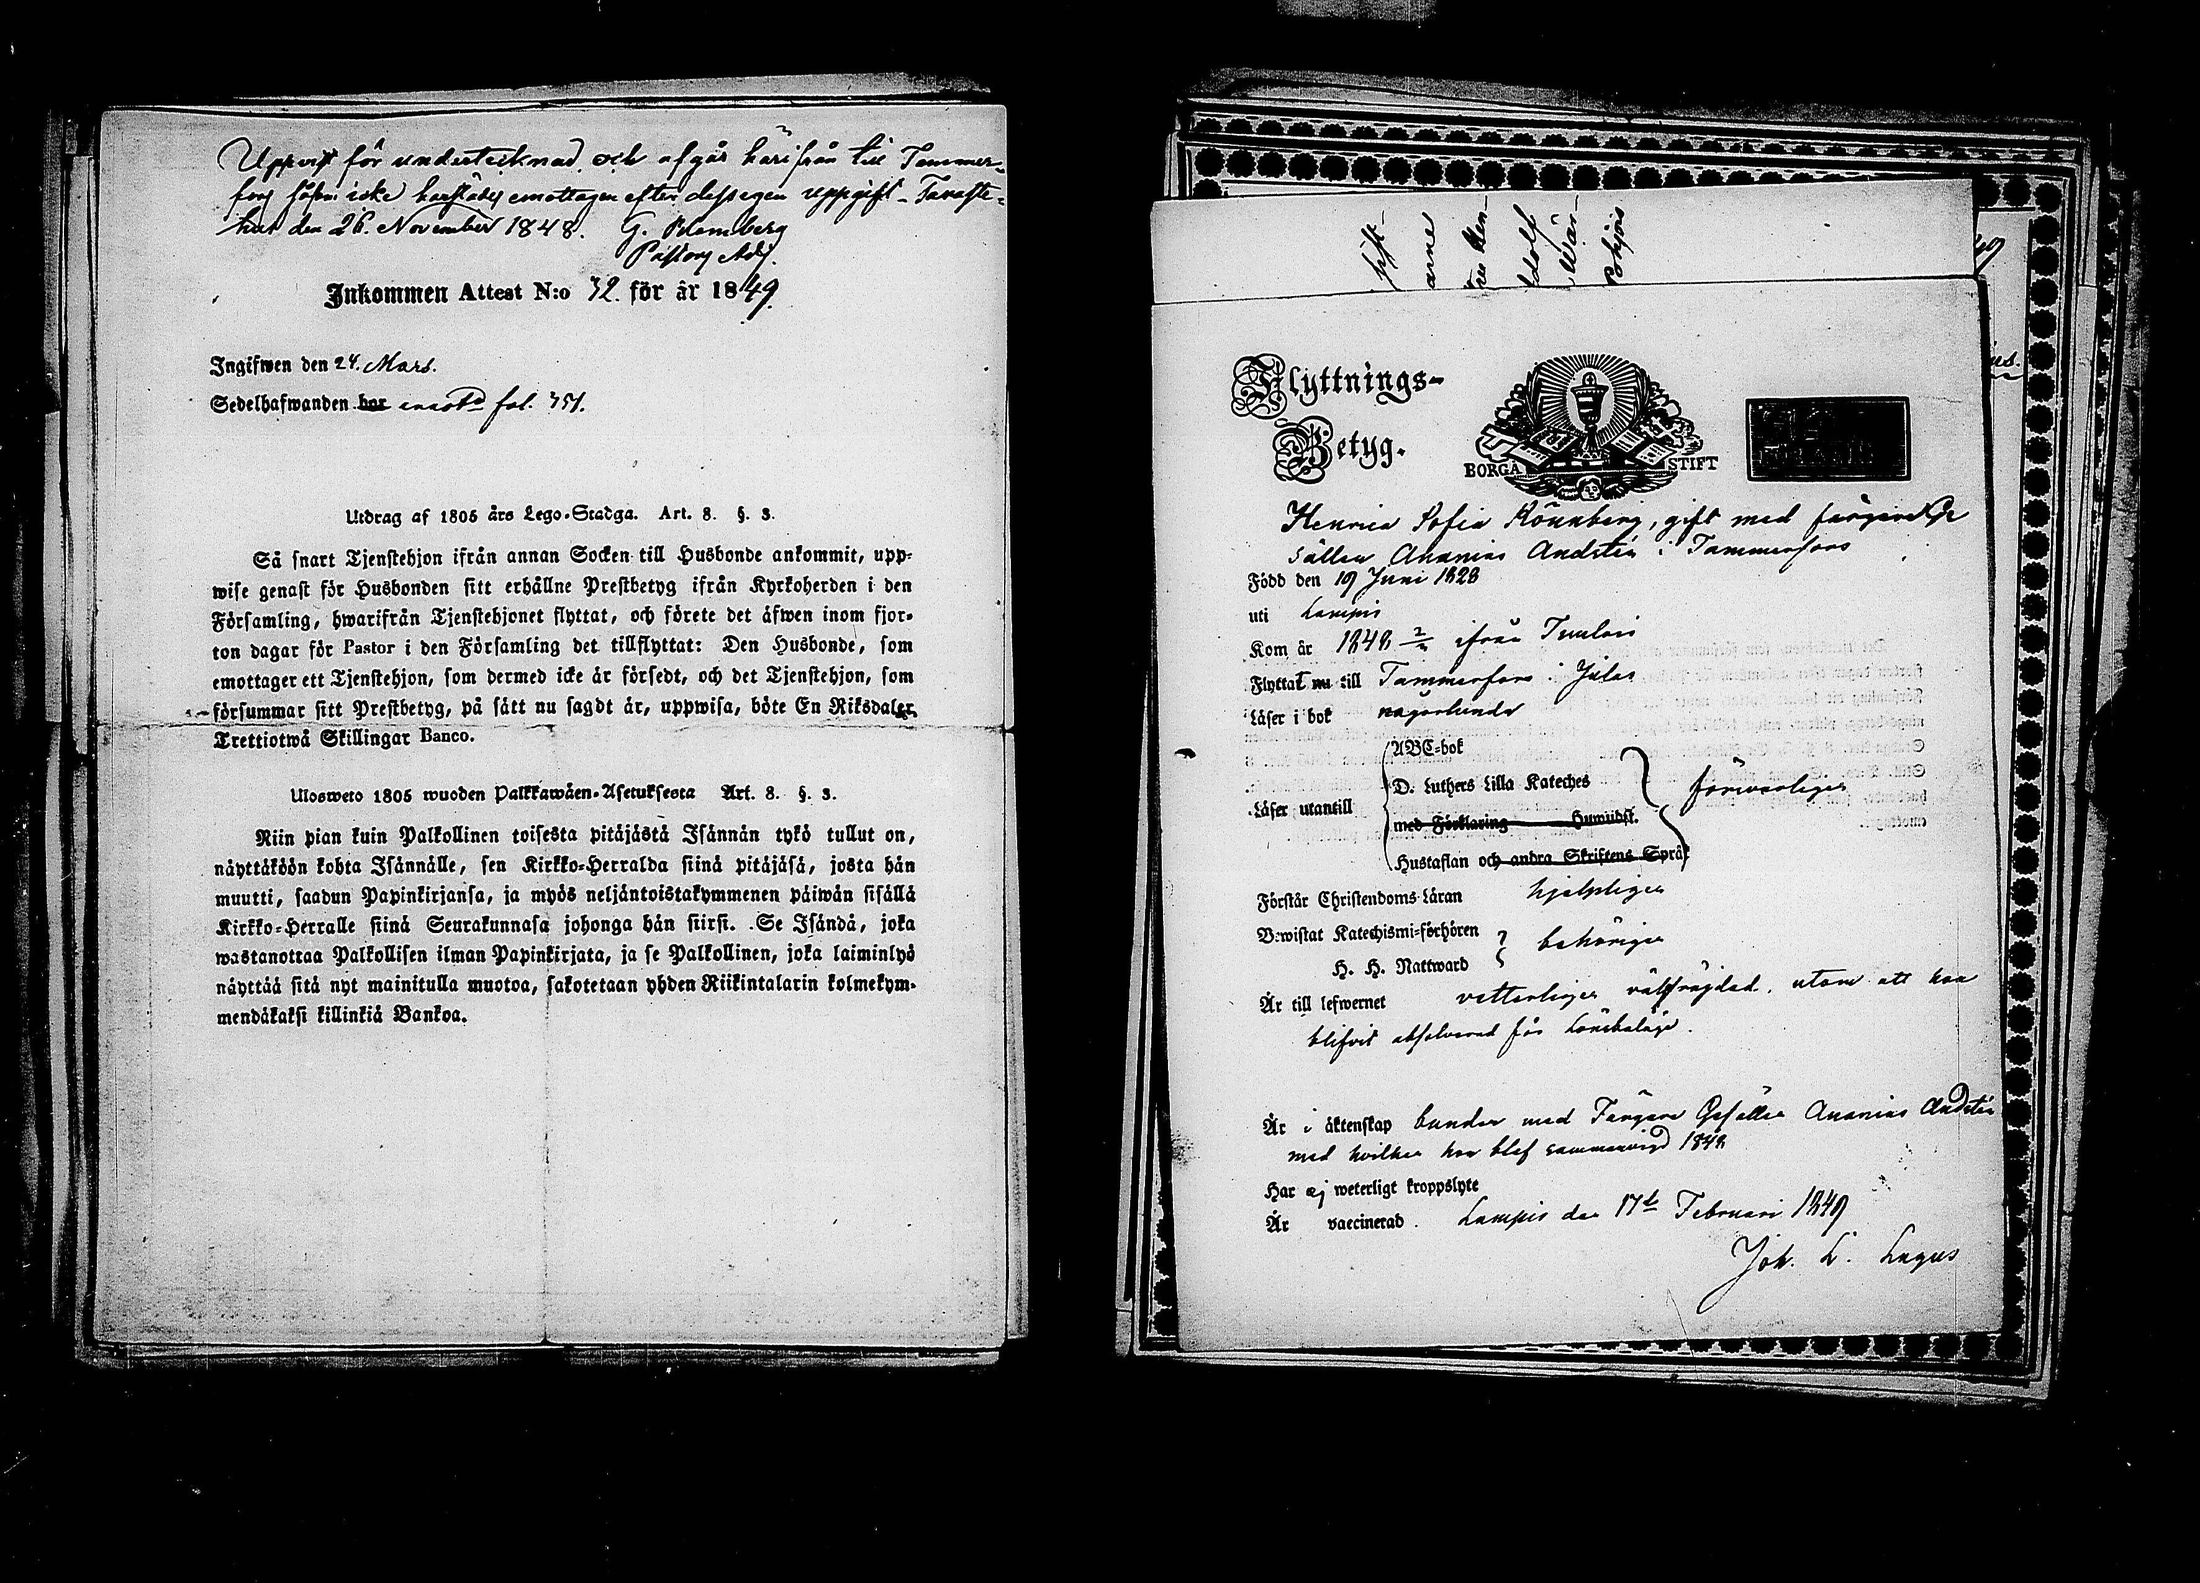 Uppvist för undertecknad och afgår härifrån till Tammer-
fors såsom icke härstädes emottagen efter dess egen uppgift – Tavaste-
hus den 26. November 1848. G. Blomberg
Pastors Adj.
Inkommen Attest N:o 32. för år 1849.
Ingifwen den 24. Mars.
Sedelhafwanden bor fol. 351.
Utdrag af 1805 års Lego-Stadga. Art. 8. §. 3.
Så snart Tjenstehjon ifrån annan Socken till Husbonde ankommit, upp-
wise genast för Husbonden sitt erhållne Prestbetyg ifrån Kyrkoherden i den
Församling, hwarifrån Tjenstehjonet flyttat, och förete det äfwen inom fjor-
ton dagar för Pastor i den Församling det tillflyttat: Den Husbonde, som
emottager ett Tjenstehjon, som dermed icke är försedt, och det Tjenstehjon, som
försummar sitt Prestbetyg, på sätt nu sagdt är, uppwisa, böte En Riksdaler
Trettiotwå Skillingar Banco.
Ulosweto 1805 wuoden Palkkawäen-Asetuksesta Art. 8. §. 3.
Niin pian kuin Palkollinen toisesta pitäjästä Isännän tykö tullut on,
näyttäköön kohta Isännälle, sen Kirkko-Herralda siinä pitäjäsä, josta hän
muutti, saadun Papinkirjansa, ja myös neljäntoistakymmenen päiwän sisällä
Kirkko-Herralle siinä Seurakunnasa johonga hän siirsi. Se Isändä, joka
wastanottaa Palkollisen ilman Papinkirjata, ja se Palkollinen, joka laiminlyö
näyttää sitä nyt mainitulla muotoa, sakotetaan yhden Riikintalarin kolmekym-
mendäkaksi killinkiä Bankoa.
Flyttnings-
Betyg.
BORGÅ STIFT
Henrica Sofia Rönnberg, gift med färgare Ge
sällen Ananias Andstén i Tammerfors
Född den 19 Juni 1828
uti Lampis
Kom år 1848 ifrån Tuulois
Flyttat nu till Tammerfors i Julas
Läser i bok någorlunda
Läser utantill
ABC-bok
D. Luthers Lilla Kateches
med Förklaring Huwudst.
Hustaflan och andra Skriftens Språk
försvarligen
Förstår Christendoms-Läran hjelpligen
Bewistat Katechismi-förhören
H. H. Nattward
behörigen
Är till lefwernet vetterligen välfrägdad, utom att hon
blifvit absolverad för Lönskaläge.
Är i äktenskap bunden med Färgare Gesällen Ananias Andstén
med hvilken hon blef sammanvigd 1848
Har ej weterligt kroppslyte
Är vaccinerad. Lampis den 17de Februari 1849
Joh. L. Lagus